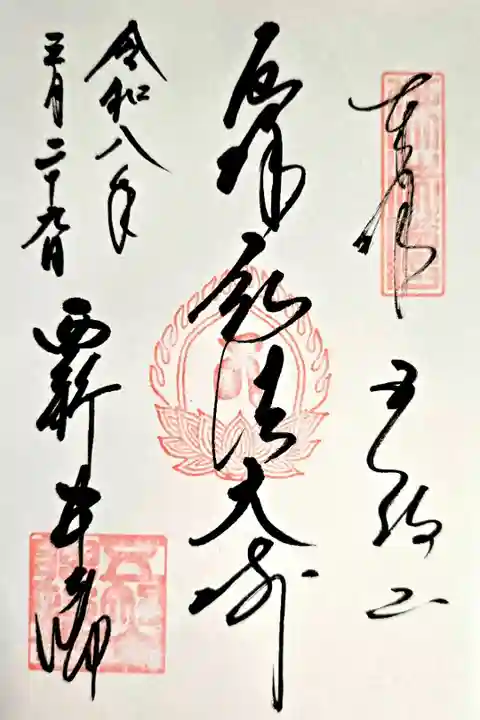 奉拝 五智山
厄除弘法大師
令和八年
三月二十九日
西新井大師